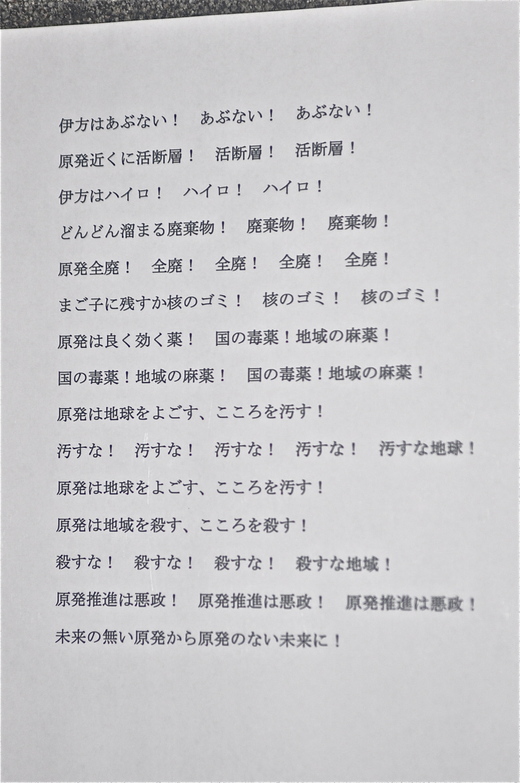 伊方はあぶない！　あぶない！　あぶない！
原発近くに活断層！　活断層！　活断層！
伊方はハイロ！　ハイロ！　ハイロ！
どんどん溜まる廃棄物！　廃棄物！　廃棄物！
原発全廃！　全廃！　全廃！　全廃！　全廃！
まご子に残すか核のゴミ！　核のゴミ！　核のゴミ！
原発は良く効く薬！　国の毒薬！地域の麻薬！
国の毒薬！地域の麻薬！　国の毒薬！地域の麻薬！
原発は地球をよごす、こころを汚す！
汚すな！　汚すな！　汚すな！　汚すな！　汚すな地球！
原発は地球をよごす、こころを汚す！
原発は地域を殺す、こころを殺す！
殺すな！　殺すな！　殺すな！　殺すな地域！
原発推進は悪政！　原発推進は悪政！　原発推進は悪政！
未来の無い原発から原発のない未来に！